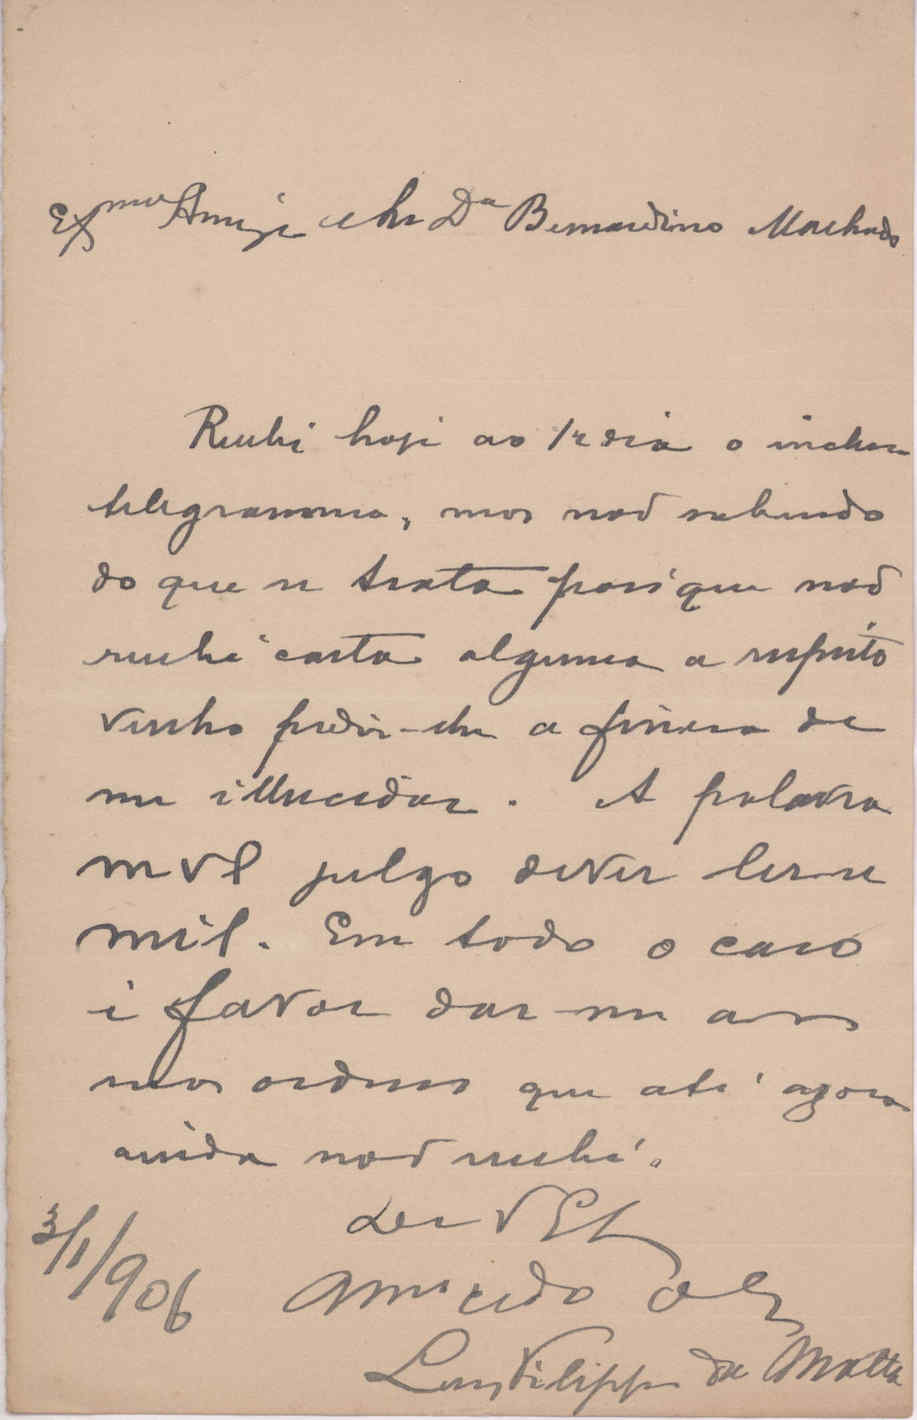 Exmo Amigo e Sr Dr Bernardino Machado
Recebi hoje ao ½ dia o incluso
telegramma, mas não sabendo
do que se trata porque não
recebi carta alguma a respeito
venho pedir-lhe a fineza de
me illucidar. A palavra
mvl julgo dever ler-se
mil. Em todo o caso
é favor dar-me as
suas ordens que até agora
ainda não recebi.
De V Ex
Amº crdo obº
Luiz Filippe da Matta
3/1/906